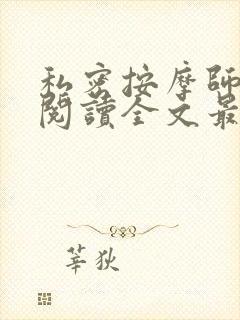 私密按摩師
閱讀全文最
莘狄